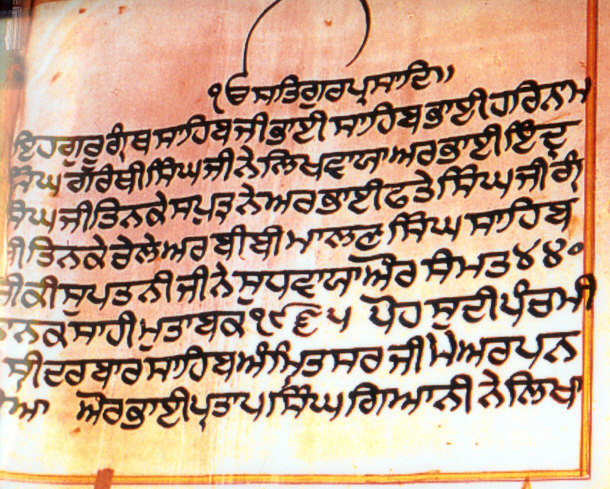 ੴ ਸਤਿਗੁਰਪ੍ਰਸਾਦਿ॥
ਇਹਗੁਰੂਗ੍ਰੰਥਸਾਹਿਬਜੀਭਾਈਸਾਹਿਬਭਾਈਹਰਿਨਾਮ
ਸਿੰਘਗ੍ਰੰਥੀਸਿੰਘਜੀਨੇਲਿਖਵਾਯਾਅਰਭਾਈਇੰਦ੍ਰ
ਸਿੰਘਜੀਤਿਨਕੇਸਪੁਤ੍ਰਨੇਅਰਭਾਈਫਤੇਸਿੰਘਜੀਗ੍ਰੰ
ਥੀਤਿਨਕੇਚੇਲੇਅਰਬੀਬੀਮਾਲਣਸਿੰਘਸਾਹਿਬ
ਜੀਕੀਸੁਪਤਨੀਜੀਨੇਸੁਧਵਾਯਾਔਰਸੰਮਤ੪੪੦
ਨਾਨਕਸਾਹੀਮੁਤਾਬਕ੧੯੬੫ ਪੋਹਸੁਦੀਪੰਚਮੀ
ਸ੍ਰੀਦਰਬਾਰਸਾਹਿਬਅੰਮ੍ਰਿਤਸਰਜੀਮੇਅਰਪਨ
ਔਰਭਾਈਪ੍ਰਤਾਪਸਿੰਘਗਿਆਨੀਨੇਲਿਖਾ